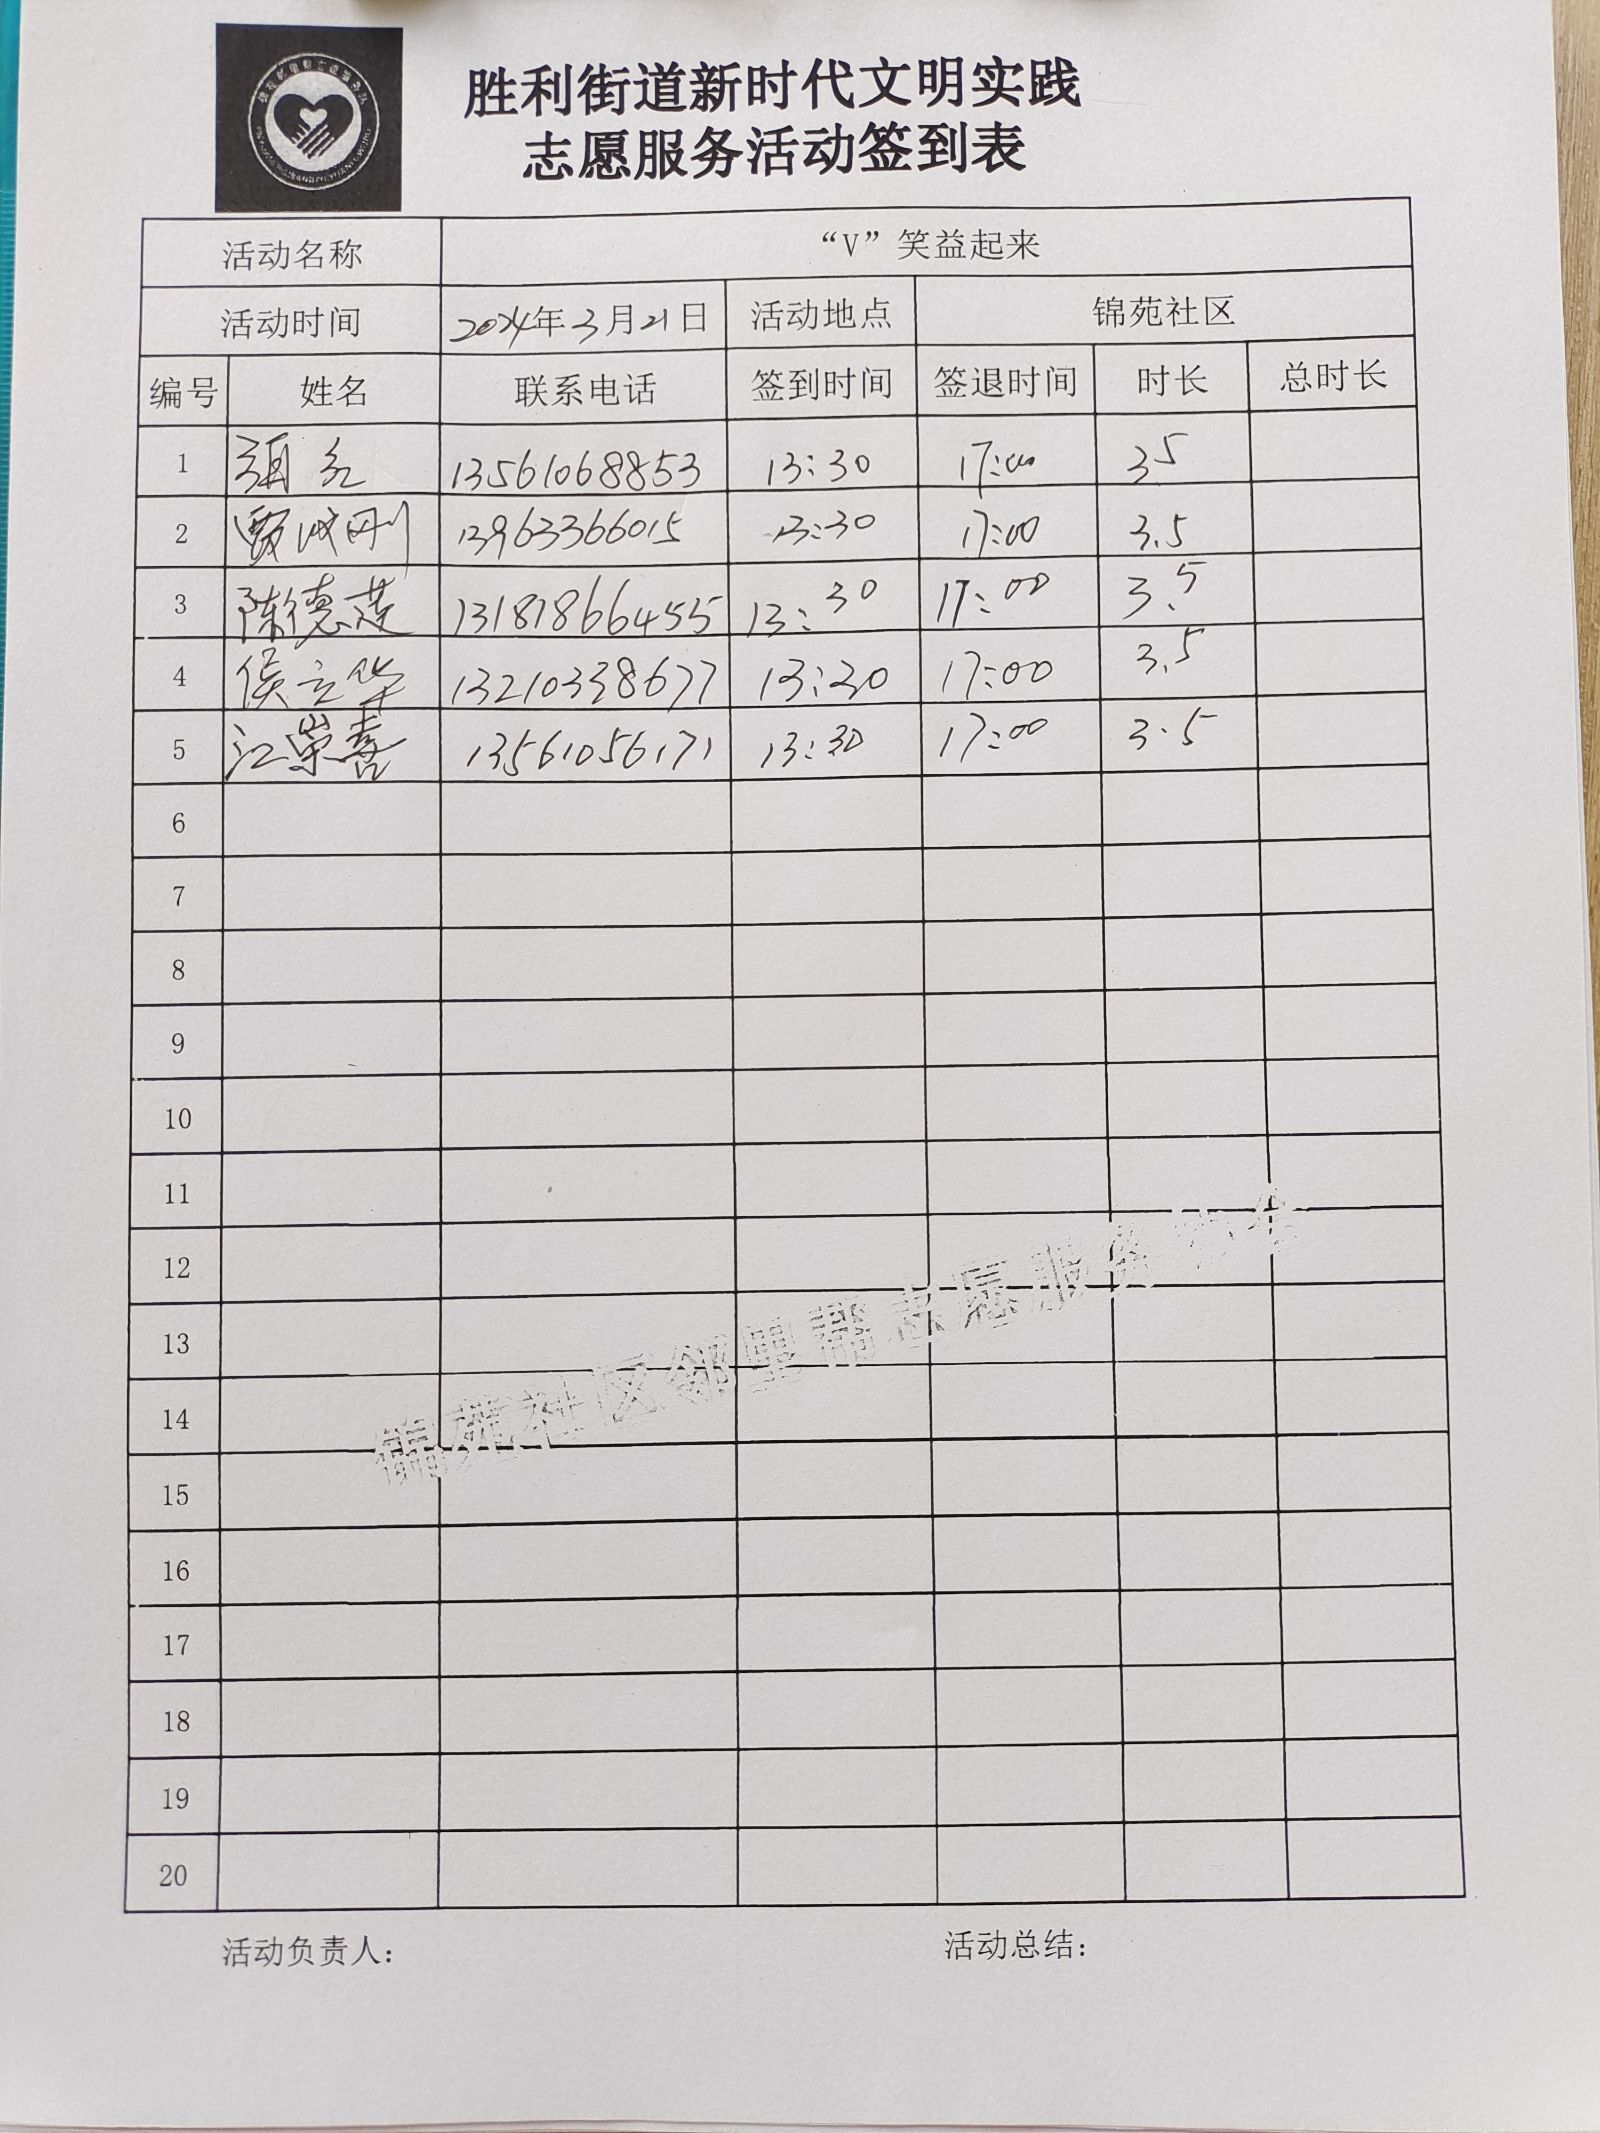 胜利街道新时代文明实践
志愿服务活动签到表
活动名称 “V”笑益起来
活动时间 2024年3月21日 活动地点 锦苑社区
编号 姓名 联系电话 签到时间 签退时间 时长 总时长
1 13561068853 13:30 17:00 35
2 13963366015 13:30 17:00 3.5
3 陈德莲 13181866455 13:30 17:00 3.5
4 侯立华 13210338677 13:30 17:00 3.5
5 江崇喜 13561056171 13:30 17:00 3.5
6
7
8
9
10
11
12
13
14
15
16
17
18
19
20
锦苑社区邻里帮志愿服务协会
活动负责人: 活动总结: